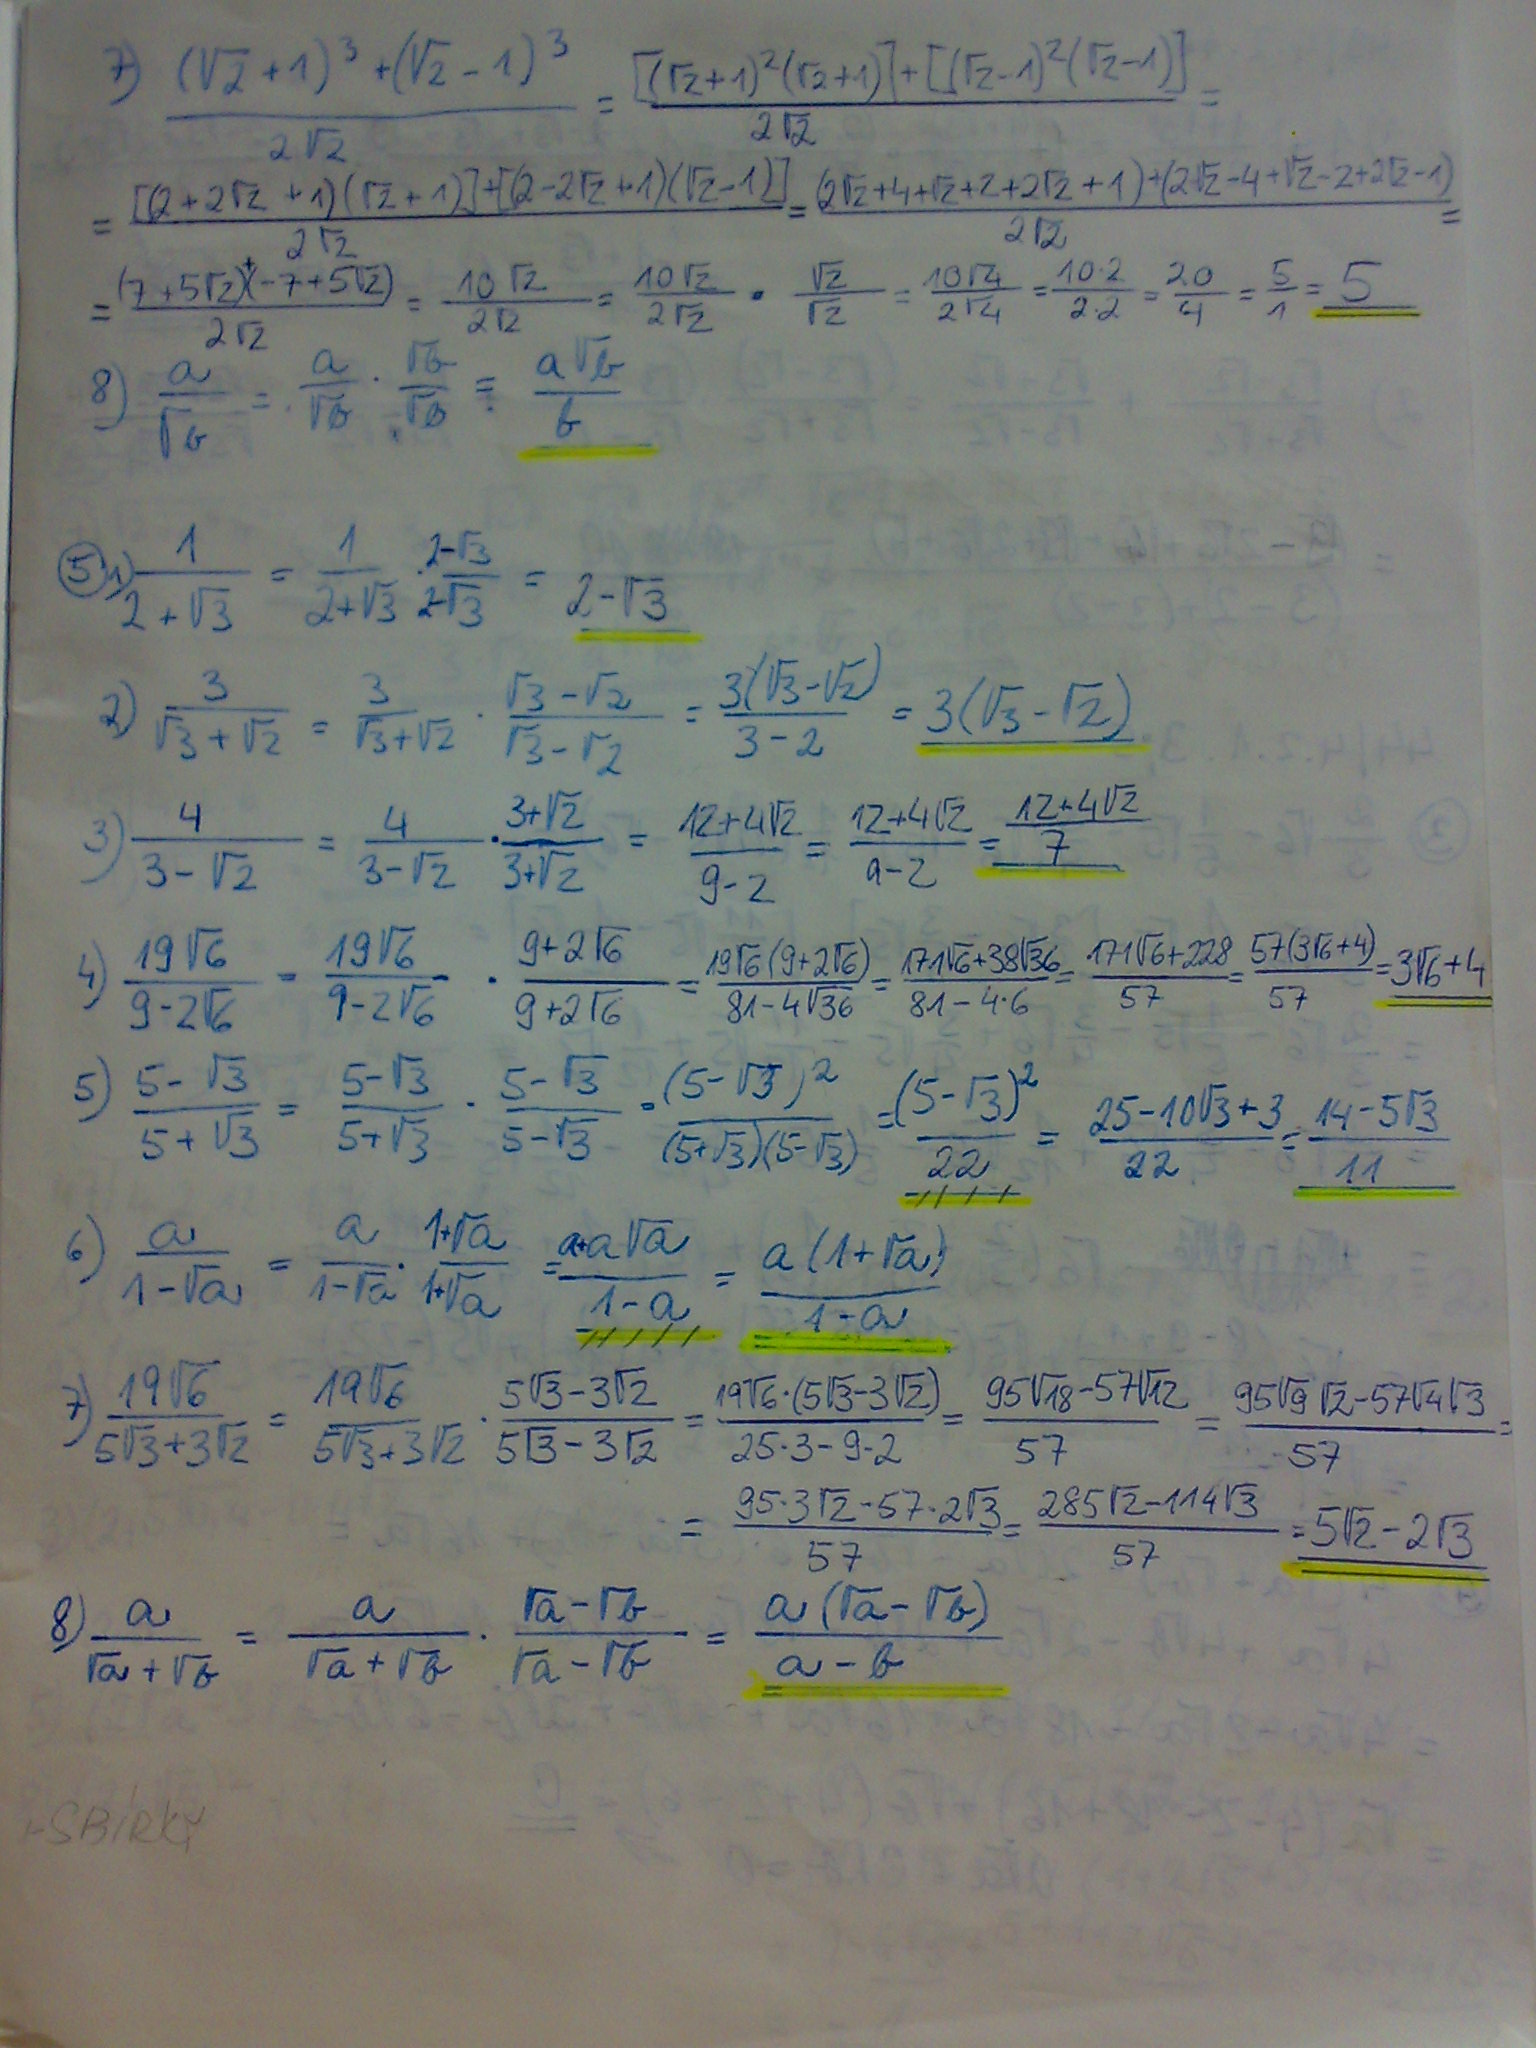 7) ((√2+1)³+(√2-1)³)/(2√2) = ([(√2+1)²(√2+1)]+[(√2-1)²(√2-1)])/(2√2) =
= ([(2+2√2+1)(√2+1)]+[(2-2√2+1)(√2-1)])/(2√2) = ((2√2+4+√2+2+2√2+1)+(2√2-4+√2-2+2√2-1))/(2√2) =
= ((7+5√2)+(-7+5√2))/(2√2) = (10√2)/(2√2) = (10√2)/(2√2) · √2/√2 = (10√4)/(2√4) = (10·2)/(2·2) = 20/4 = 5/1 = 5
8) a/√b = a/√b · √b/√b = (a√b)/b
⑤ 1) 1/(2+√3) = 1/(2+√3) · (2-√3)/(2-√3) = 2-√3
2) 3/(√3+√2) = 3/(√3+√2) · (√3-√2)/(√3-√2) = (3(√3-√2))/(3-2) = 3(√3-√2)
3) 4/(3-√2) = 4/(3-√2) · (3+√2)/(3+√2) = (12+4√2)/(9-2) = (12+4√2)/(9-2) = (12+4√2)/7
4) (19√6)/(9-2√6) = (19√6)/(9-2√6) · (9+2√6)/(9+2√6) = (19√6(9+2√6))/(81-4√36) = (171√6+38√36)/(81-4·6) = (171√6+228)/57 = (57(3√6+4))/57 = 3√6+4
5) (5-√3)/(5+√3) = (5-√3)/(5+√3) · (5-√3)/(5-√3) = (5-√3)²/((5+√3)(5-√3)) = (5-√3)²/22 = (25-10√3+3)/22 = (14-5√3)/11
6) a/(1-√a) = a/(1-√a) · (1+√a)/(1+√a) = (a+a√a)/(1-a) = (a(1+√a))/(1-a)
7) (19√6)/(5√3+3√2) = (19√6)/(5√3+3√2) · (5√3-3√2)/(5√3-3√2) = (19√6·(5√3-3√2))/(25·3-9·2) = (95√18-57√12)/57 = (95√9√2-57√4√3)/57 =
= (95·3√2-57·2√3)/57 = (285√2-114√3)/57 = 5√2-2√3
8) a/(√a+√b) = a/(√a+√b) · (√a-√b)/(√a-√b) = (a(√a-√b))/(a-b)
SBÍRKY